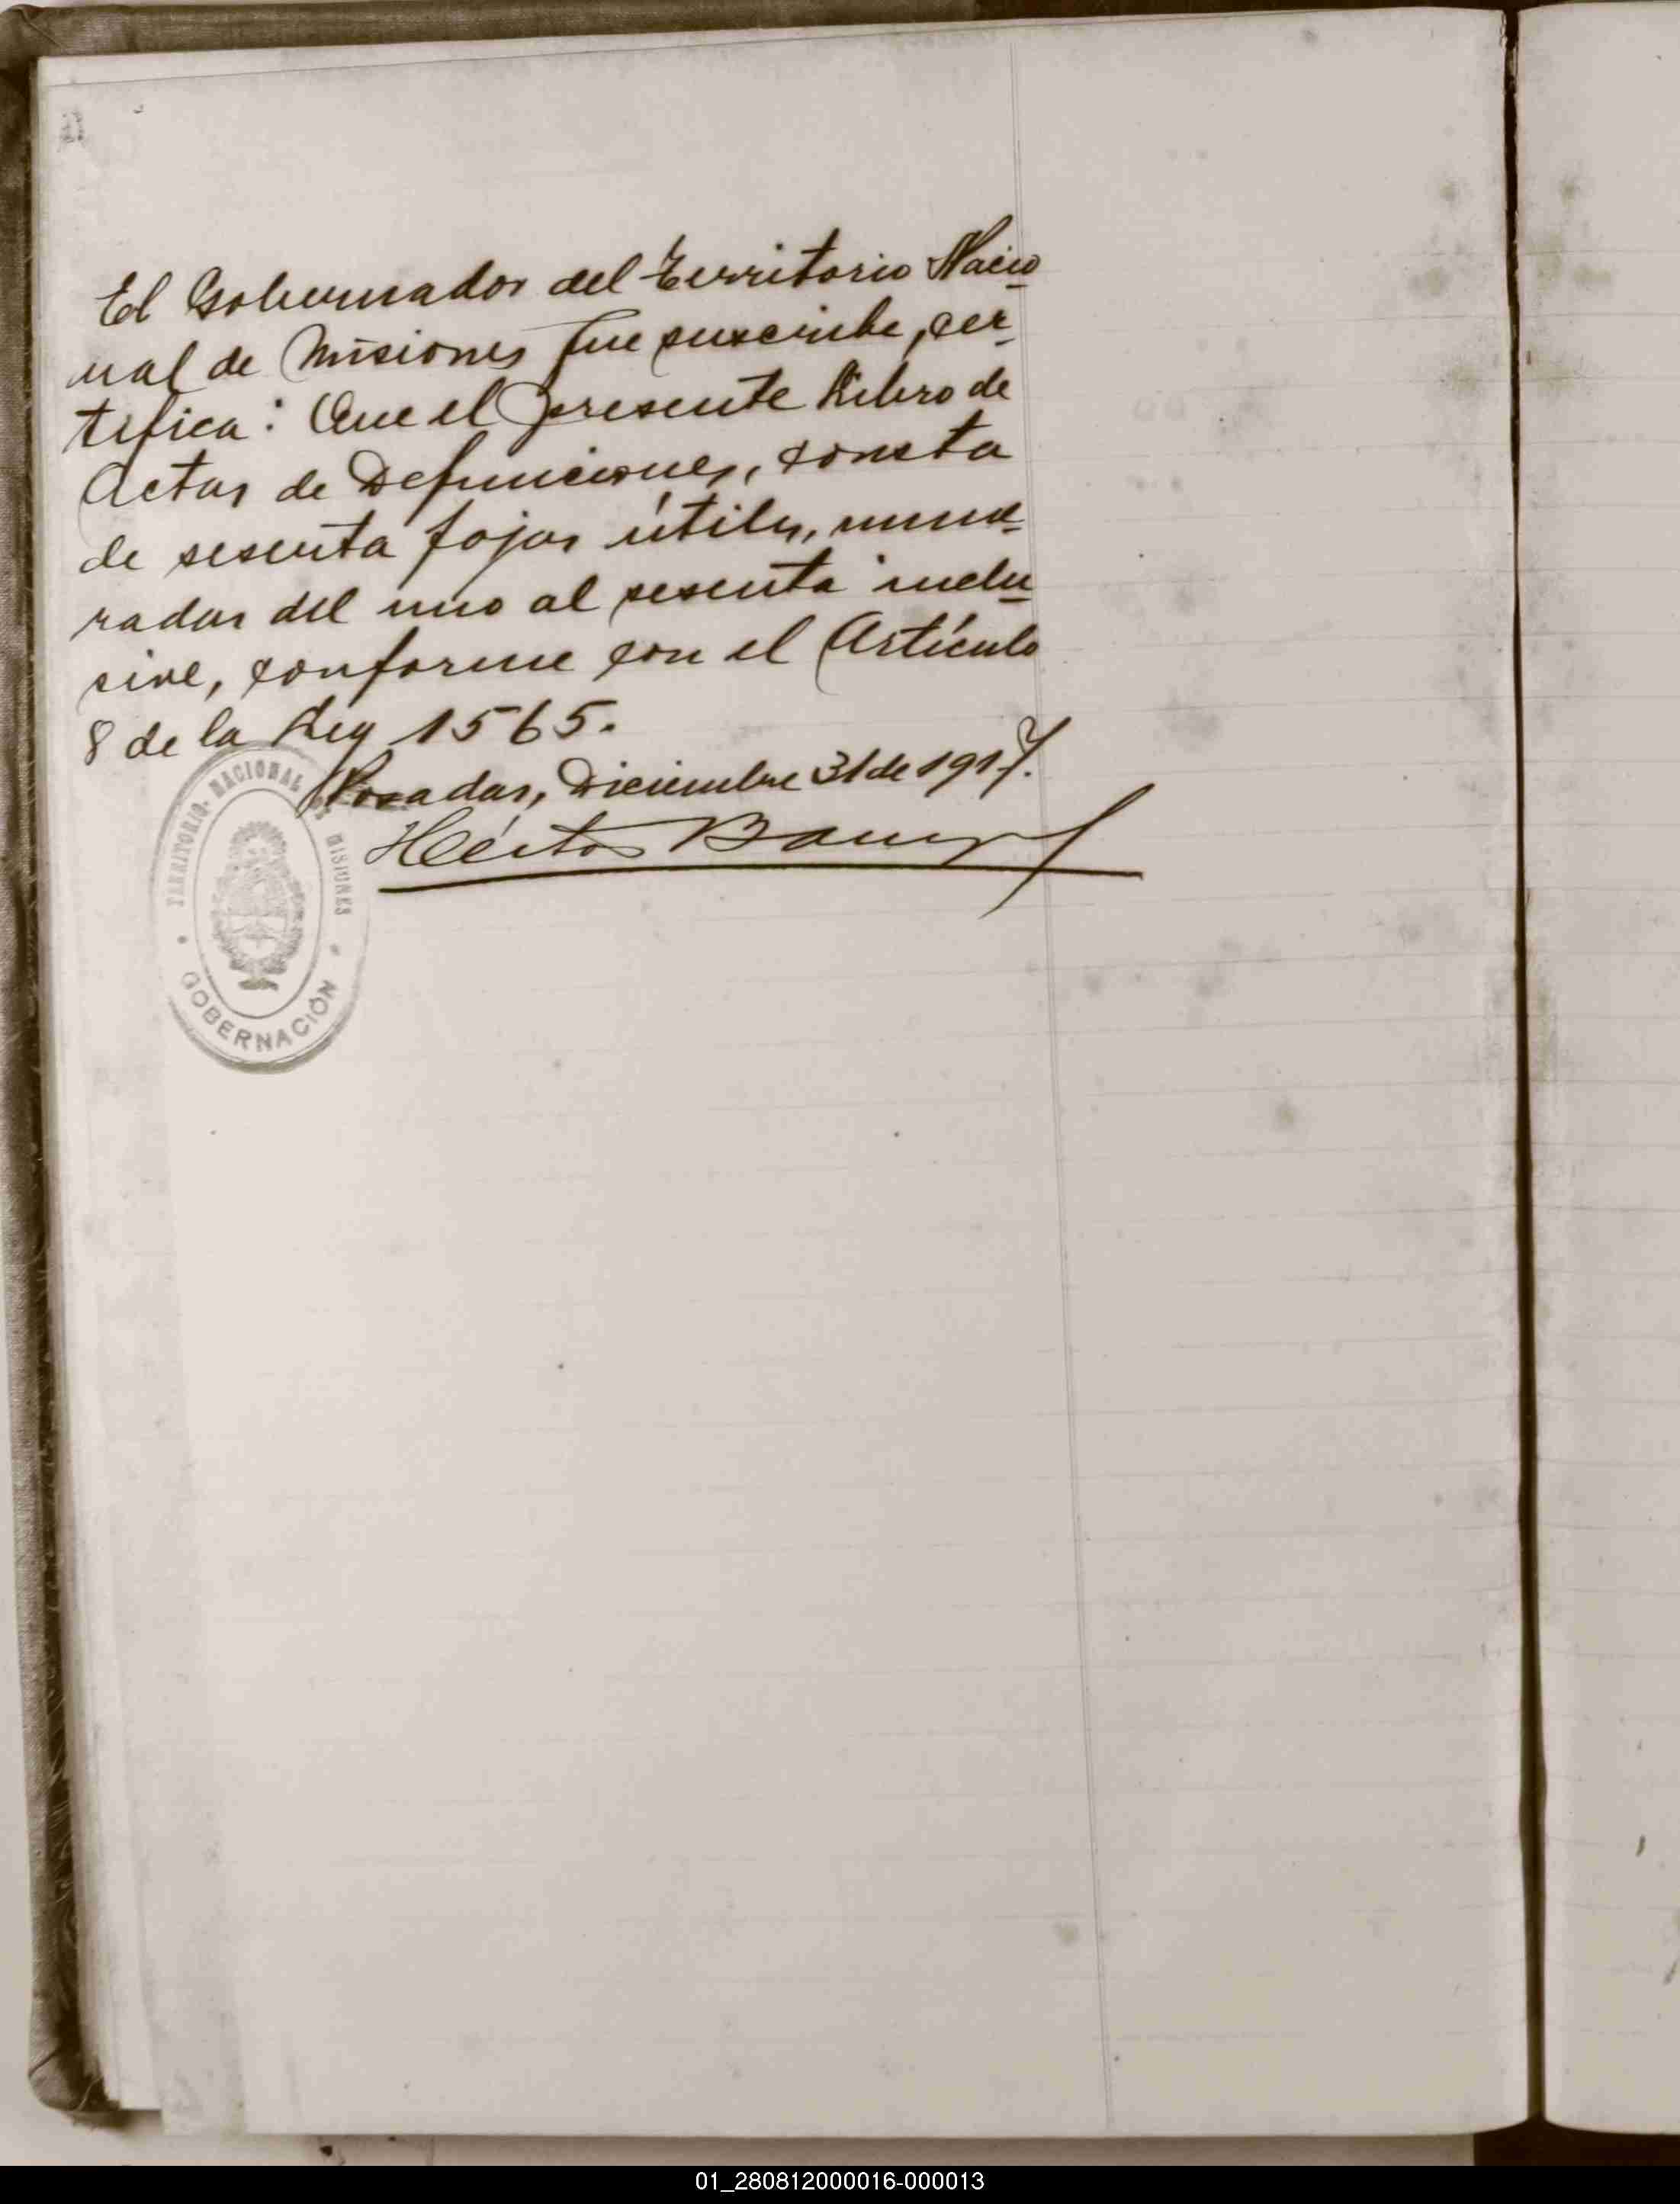 El Gobernador del Territorio Nacio
nal de Misiones que suscribe, cer
tifica: Que el presente Libro de
Actas de Defunciones, consta
de sesenta fojas útiles, nume
radas del uno al sesenta inclu
sive, conforme con el Artículo
8 de la Ley 1565.
Posadas, Diciembre 31 de 1917.
Héctor
TERRITORIO NACIONAL DE MISIONES
GOBERNACIÓN
01_280812000016-000013